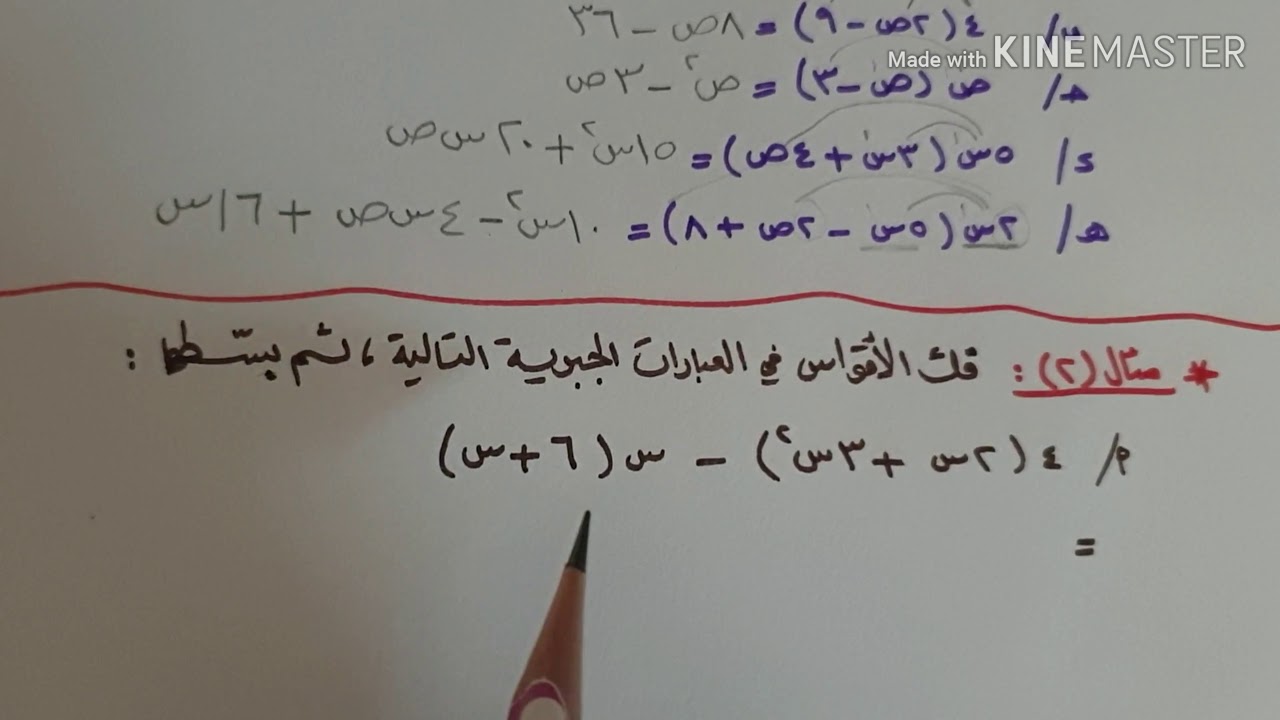 Made with KINEMASTER
ب/ ٤(٢ص - ٩) = ٨ص - ٣٦
جـ/ ص(ص - ٣) = ص٢ - ٣ص
د/ ٥س(٣س + ٤ص) = ١٥س٢ + ٢٠س ص
هـ/ ٢س(٥س - ٢ص + ٨) = ١٠س٢ - ٤س ص + ١٦س
* مثال (٢): فك الأقواس في العبارات الجبرية التالية، ثم بسّطها:
٩/ ٤(٢س + ٣س٢) - س(٦ + س)
=